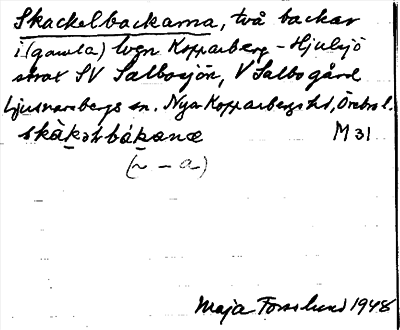 Skackelbackarna, två backar
i (gamla) lvgn Kopparberg - Hjulsjö
strax SV Salbosjön, V Salbo gård
Ljusnarsbergs sn. Nya Kopparbergs hd, Örebro l.
skàkəɫbákanæ M31
(~ - a)
Maja Forsslund 1948